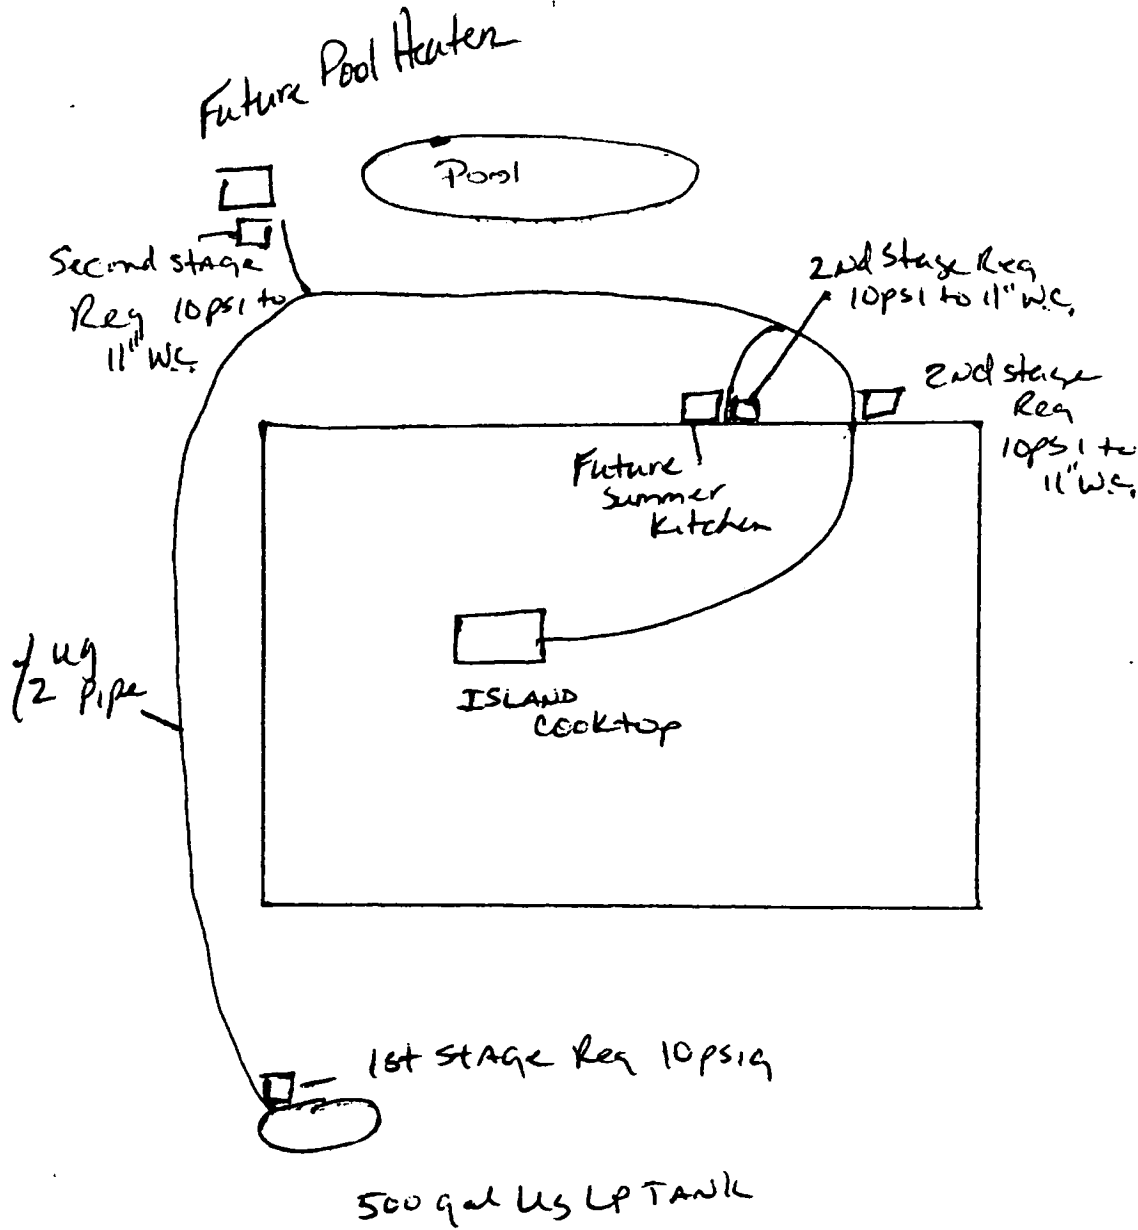 Future Pool Heater
Pool
Second stage
Reg 10psi to
11" W.C.
2nd Stage Reg
10psi to 11" W.C.
2nd stage
Reg
10psi to
11" W.C.
Future
Summer
Kitchen
1/2 ug
pipe
ISLAND
Cooktop
1st STAGE Reg 10psig
500 gal Ug LP TANK